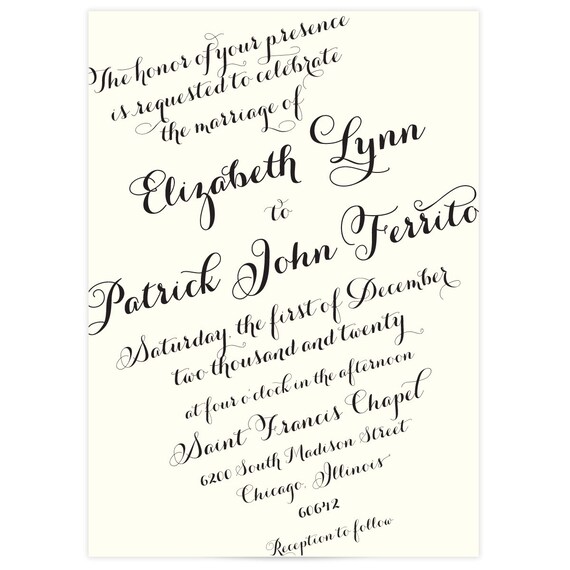 The honor of your presence
is requested to celebrate
the marriage of
Elizabeth Lynn
to
Patrick John Ferrito
Saturday, the first of December
two thousand and twenty
at four o'clock in the afternoon
Saint Francis Chapel
6200 South Madison Street
Chicago, Illinois
60642
Reception to follow